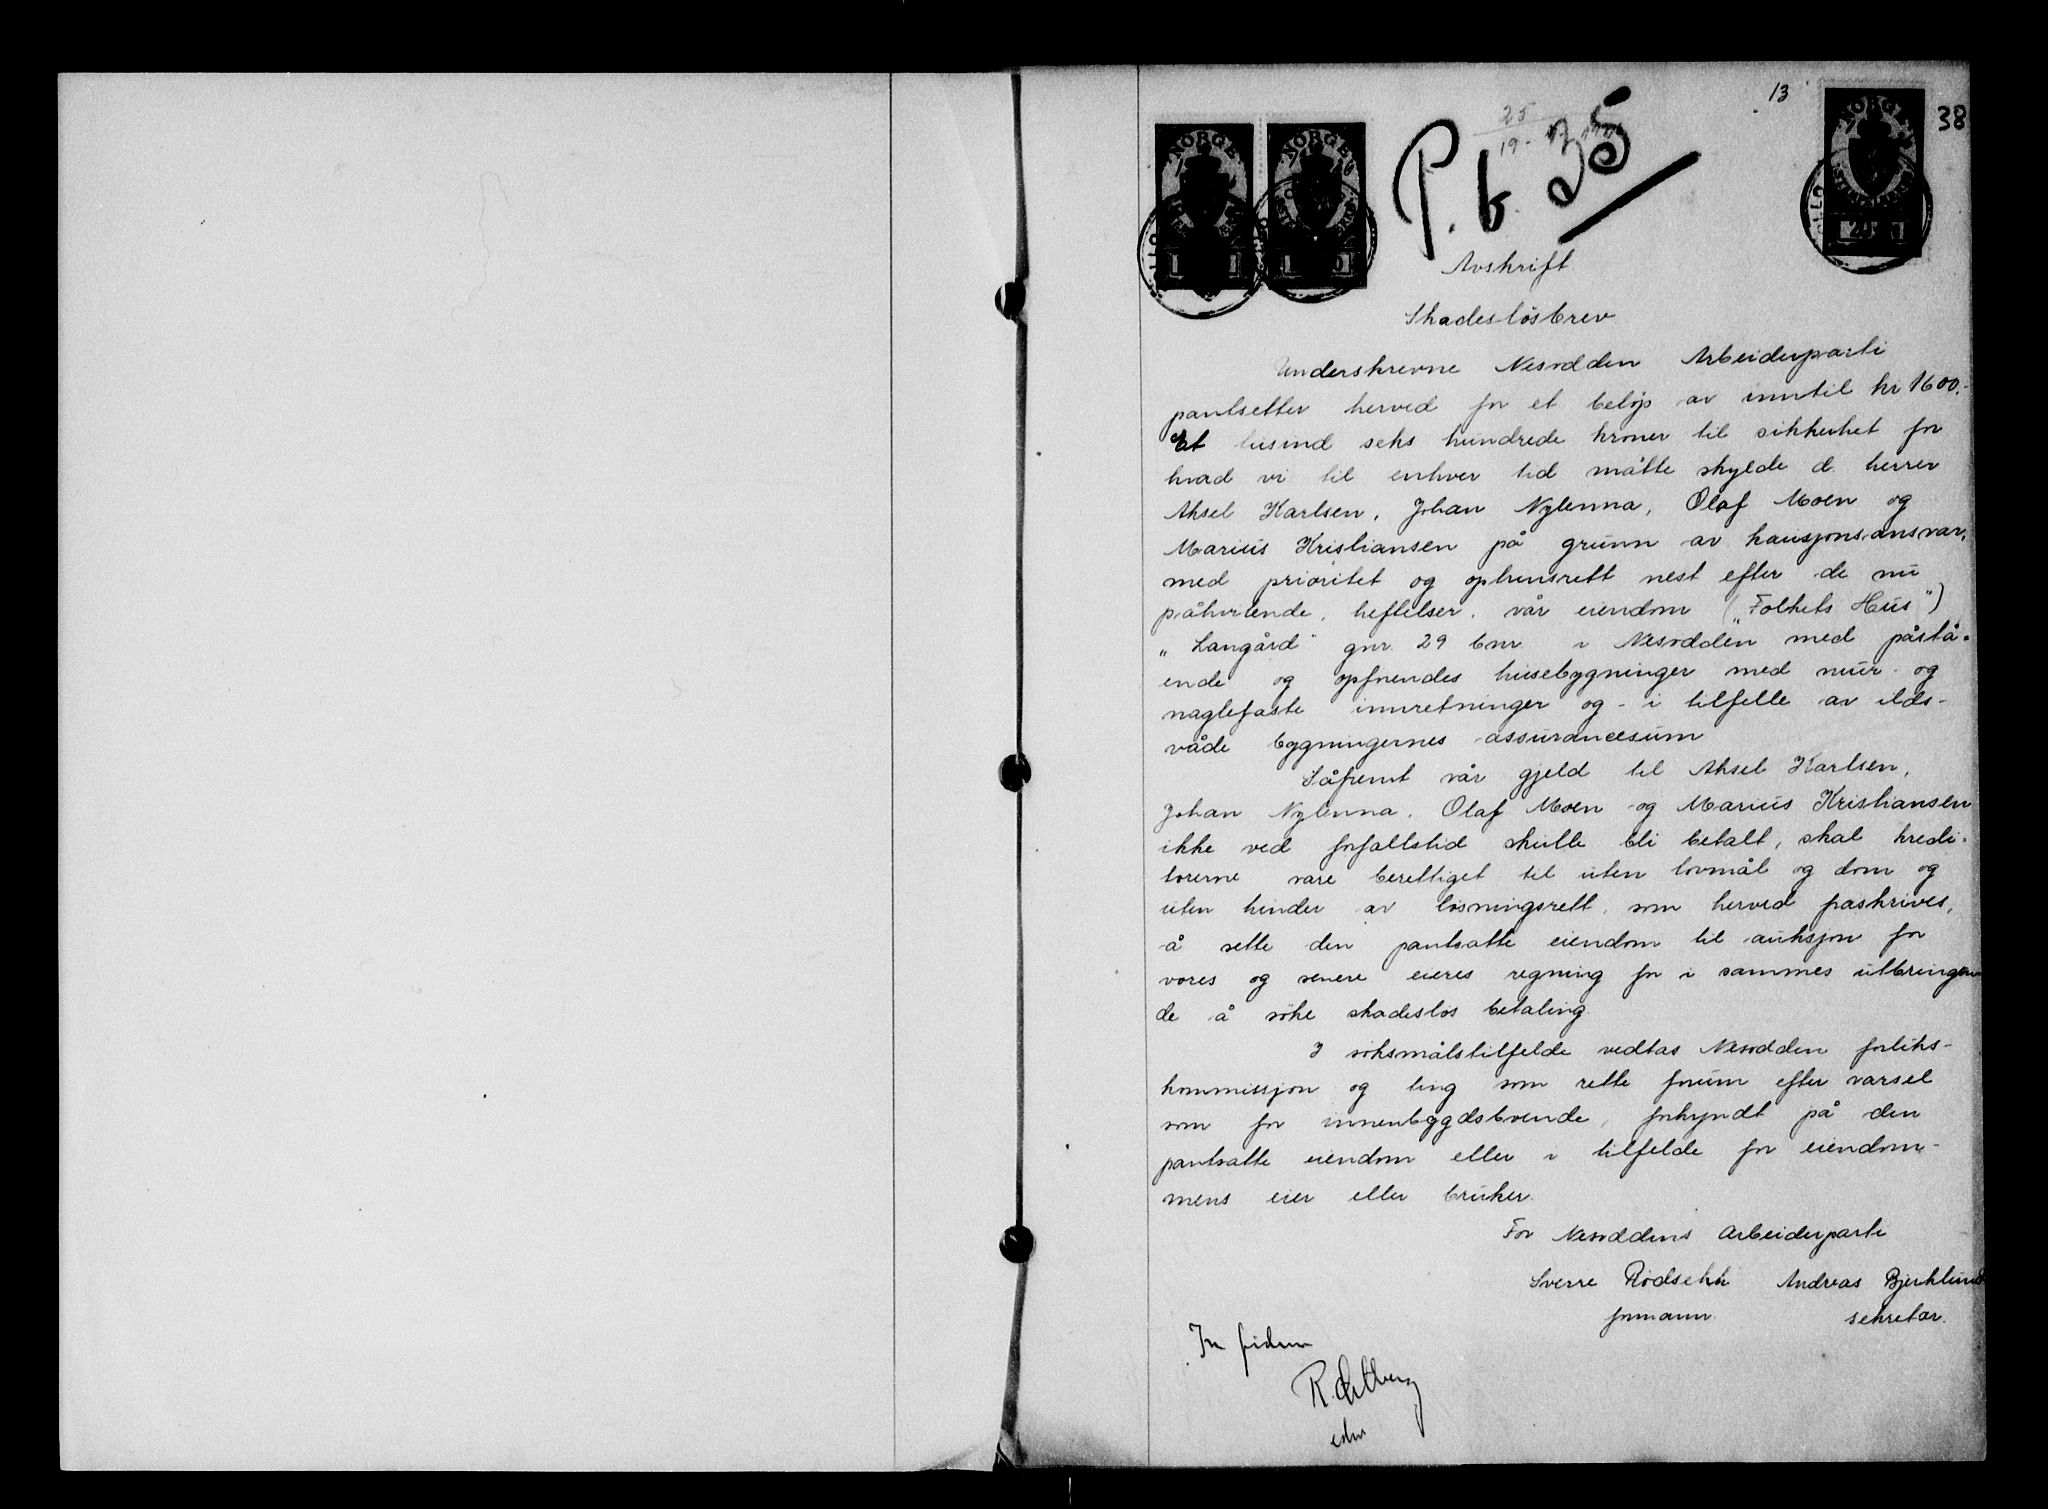 13
38
25
19
P. b. 35
NORGE
NORGE
NORGE
Avskrift.
Skadesløsbrev.
Underskrevne Nesodden Arbeiderparti
pantsetter herved for et beløp av inntil kr 1600.-
Et tusind seks hundrede kroner til sikkerhet for
hvad vi til enhver tid måtte skylde d. herrer
Aksel Karlsen, Johan Nylenna, Olaf Moen og
Marius Kristiansen på grunn av kausjonsansvar,
med prioritet og optrinsrett nest efter de nu
påhvilende heftelser, vår eiendom („Folkets Hus")
„Langård" gnr. 29 bnr. i Nesodden med påstå-
ende og opførendes husebygninger med mur- og
naglefaste innretninger og - i tilfelle av ilds-
våde bygningernes assurancesum
Såfremt vår gjeld til Aksel Karlsen,
Johan Nylenna, Olaf Moen og Marius Kristiansen
ikke ved forfallstid skulle bli betalt, skal kredi-
torerne være berettiget til uten lovmål og dom og
uten hinder av løsningsrett, som herved fraskrives,
å sette den pantsatte eiendom til auksjon for
vores og senere eieres regning for i sammes utbringen-
de å søke skadesløs betaling
I søksmålstilfelde vedtas Nesodden forliks-
kommissjon og ting som rette forum efter varsel
som for innenbygdsboende, forkyndt på den
pantsatte eiendom eller i tilfelde for eiendom-
mens eier eller bruker.
For Nesoddens Arbeiderparti
Sverre Rødsehh Andreas Bjerklund
formann. sekretær.
In fidem